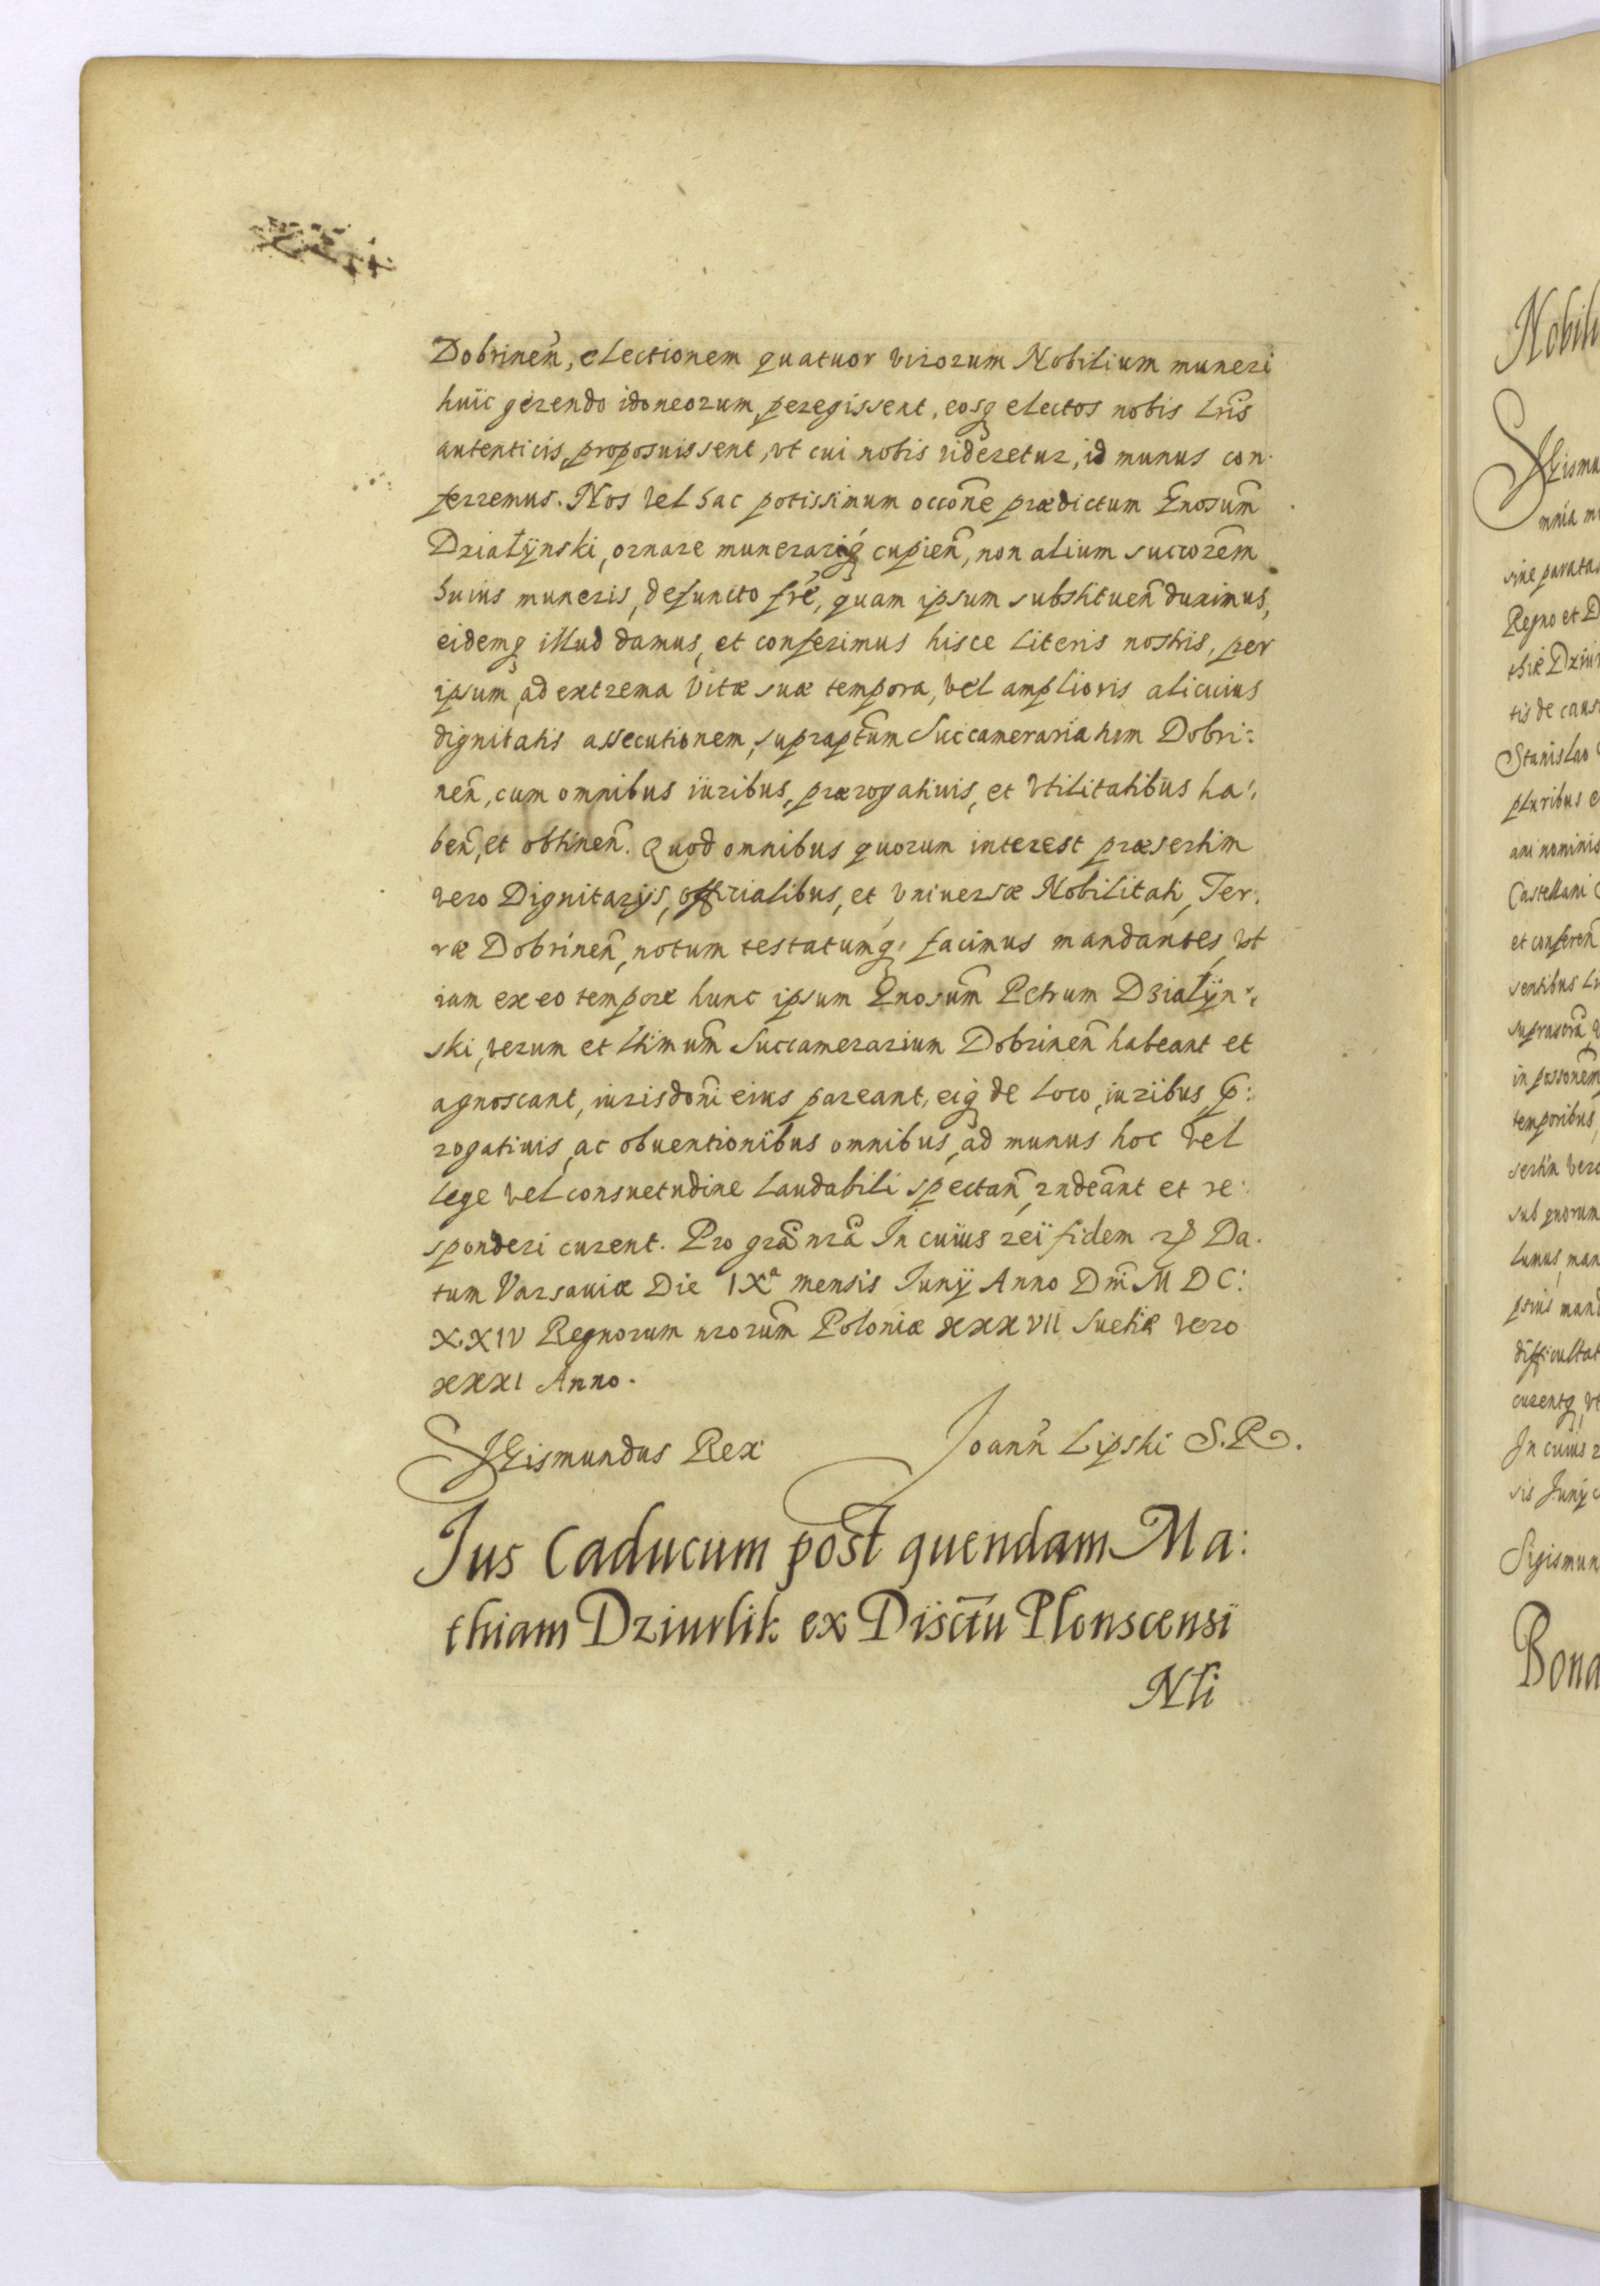 Dobrineñ, electionem quatuor virorum Nobilium muneri
huic gerendo idoneorum, peregissent, eosq electos nobis Lr̃is
autenticis, proposuissent, vt cui nobis videretur, id munus con-
ferremus. Nos vel hac potissimum occõne prædictum Gnosum̃
Działÿnski, ornare munerariq cupieñ, non alium succorem̃
huius muneris, defuncto fr̃e, quam ipsum substituen̄ duximus,
eidemq illud damus, et conferimus hisce Literis nostris, per
ipsum, ad extrema Vitæ suæ tempora, vel amplioris alicuius
dignitatis assecutionem, supraptum̃ Succamerariatum Dobri:
neñ, cum omnibus iuribus, prærogatiuis, et Vtilitatibus ha:
beñ, et obtineñ. Quod omnibus quorum interest præsertim
vero Dignitarijs, officialibus, et vniuersæ Nobilitati, Ter:
ræ Dobrineñ, notum testatumq facimus mandantes, vt
iam ex eo tempore hunc ipsum Gnosum̃ Petrum Dzialÿn:
ski, verum et Ltimum̃ Succamerarium Dobrineñ habeant et
agnoscant, iurisdoni eius pareant, eiq de Loco, iuribus, p:
rogatiuis, ac obuentionibus omnibus, ad munus hoc vel
Lege vel consuetudine Laudabili spectan̄, rndeãnt et re:
sponderi curent. Pro grã nrã In cuius rei fidem rp Da.
tum Varsauiæ Die IXa mensis Junÿ Anno Dm̃ M D C:
XXIV Regnorum nrorum̃ Poloniæ XXXVII Suetiæ vero
XXXI Anno.
Sigismundus Rex Joann̄ Lipski S. R.
Jus Caducum post quendam Ma:
thiam Dziurlik ex Disctũ Plonscensi
Nli
Nobili
Sigismu
mnia m
sine parata
Regno et D
thiæ Dziur
tis de caus
Stanislao
pluribus e
ani nominis
Castellani
et conferen̄
sentibus Lr
in possonem
temporibus,
sertin vero
sub quorum
Lumus, man
difficultat
curentq vt
In cuius r
sis Junÿ
Sigismun
Bona